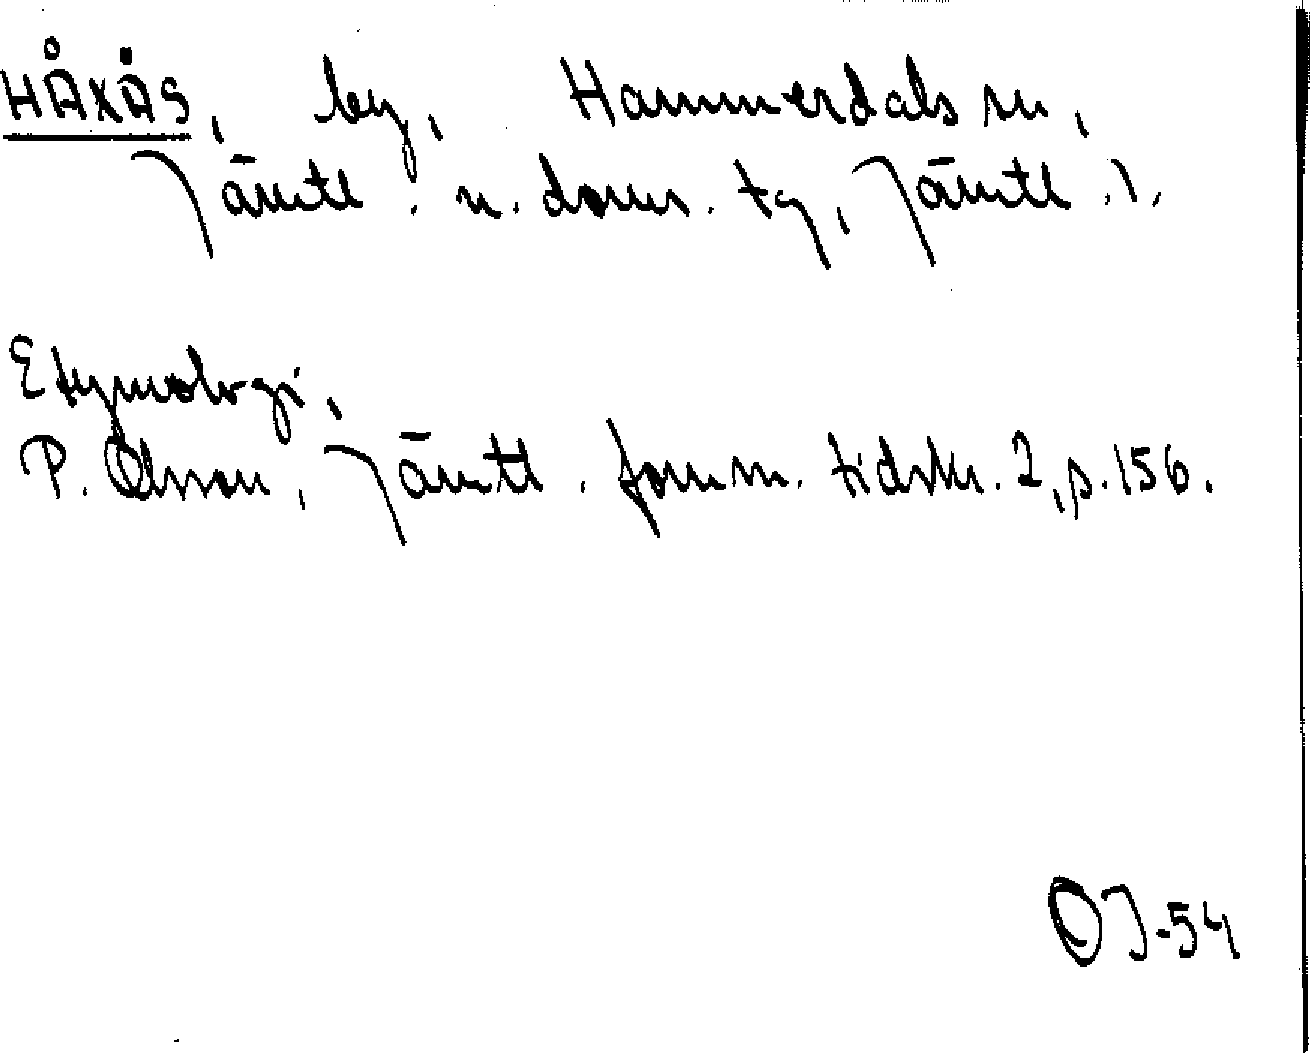 HÅXÅS, by, Hammerdals sn,
Jämtl. n. doms. tg, Jämtl. l.
Etymologi,
P. Olsson, Jämtl. fornm. tidskr. 2, s. 156.
OJ-54